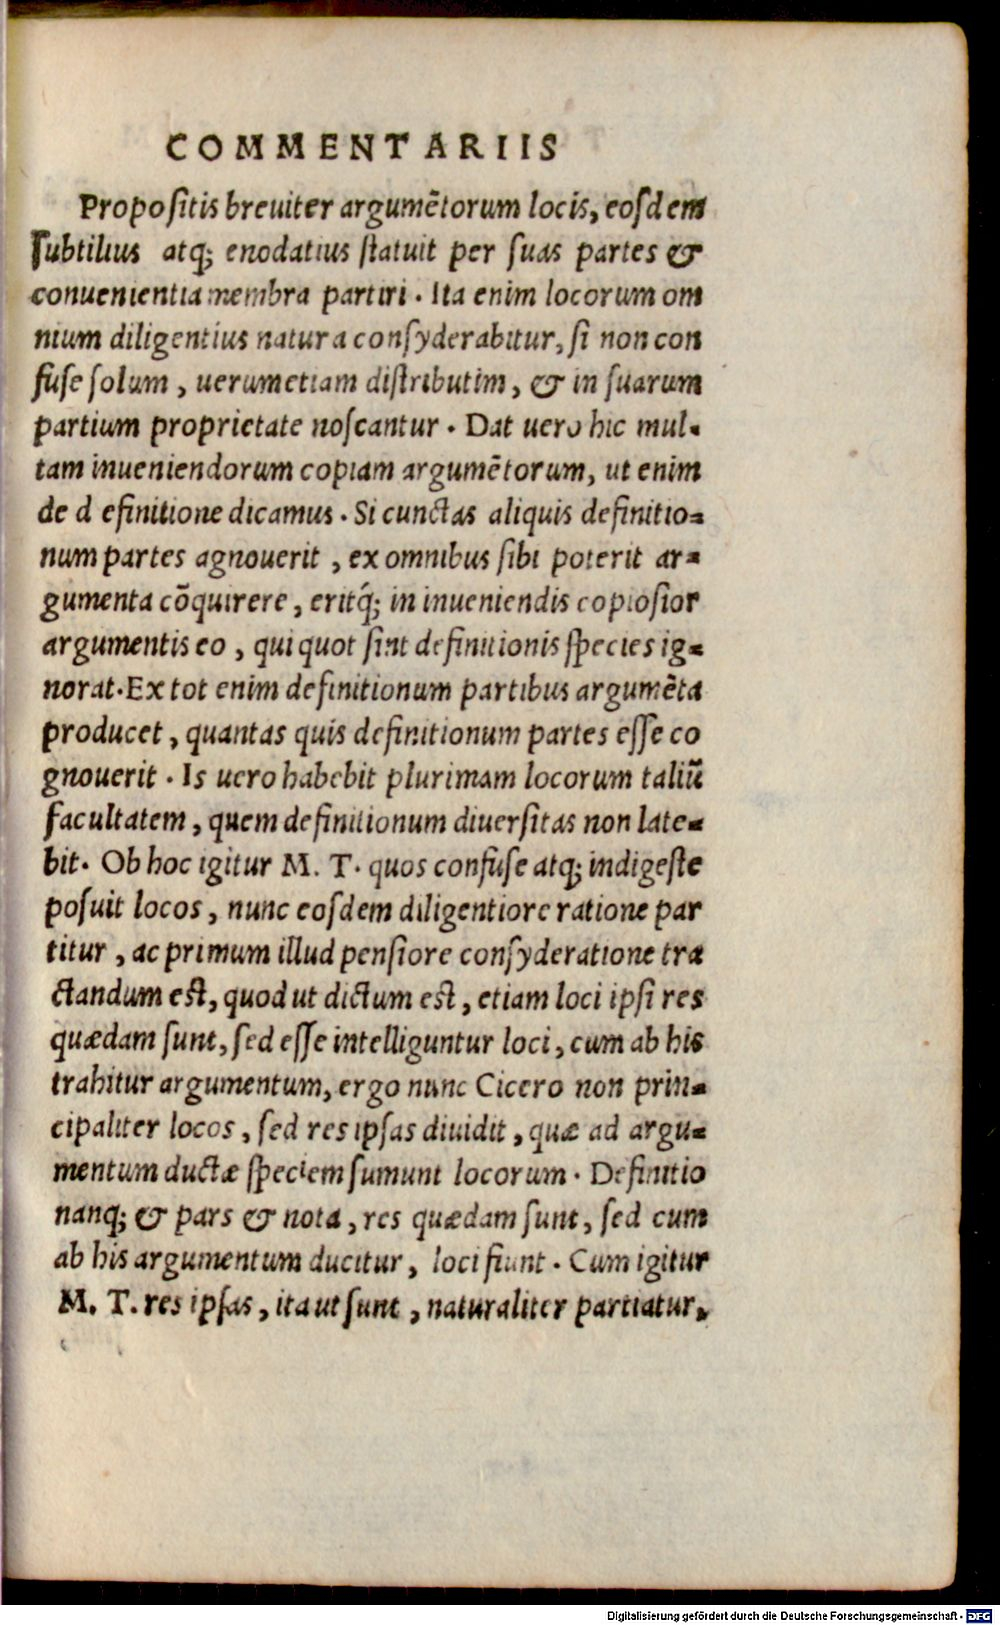 COMMENTARIIS
Propositis breuiter argumẽtorum locis, eosdem
subtilius atq; enodatius statuit per suas partes &
conuenientia membra partiri. Ita enim locorum om
nium diligentius natura consyderabitur, si non con
fuse solum, uerumetiam distributim, & in suarum
partium proprietate noscantur. Dat uero hic mul-
tam inueniendorum copiam argumẽtorum, ut enim
de d efinitione dicamus. Si cunctas aliquis definitio=
num partes agnouerit, ex omnibus sibi poterit ar=
gumenta cõquirere, eritq́; in inueniendis copiosior
argumentis eo, qui quot sint definitionis species ig=
norat. Ex tot enim definitionum partibus argumẽta
producet, quantas quis definitionum partes esse co
gnouerit. Is uero habebit plurimam locorum taliũ
facultatem, quem definitionum diuersitas non late=
bit. Ob hoc igitur M. T. quos confuse atq; indigeste
posuit locos, nunc eosdem diligentiore ratione par
titur, ac primum illud pensiore consyderatione tra
ctandum est, quod ut dictum est, etiam loci ipsi res
quædam sunt, sed esse intelliguntur loci, cum ab his
trahitur argumentum, ergo nunc Cicero non prin=
cipaliter locos, sed res ipsas diuidit, quæ ad argu=
mentum ductæ speciem sumunt locorum. Definitio
nanq; & pars & nota, res quædam sunt, sed cum
ab his argumentum ducitur, loci fiunt. Cum igitur
M. T. res ipsas, ita ut sunt, naturaliter partiatur,
Digitalisierung gefördert durch die Deutsche Forschungsgemeinschaft - DFG